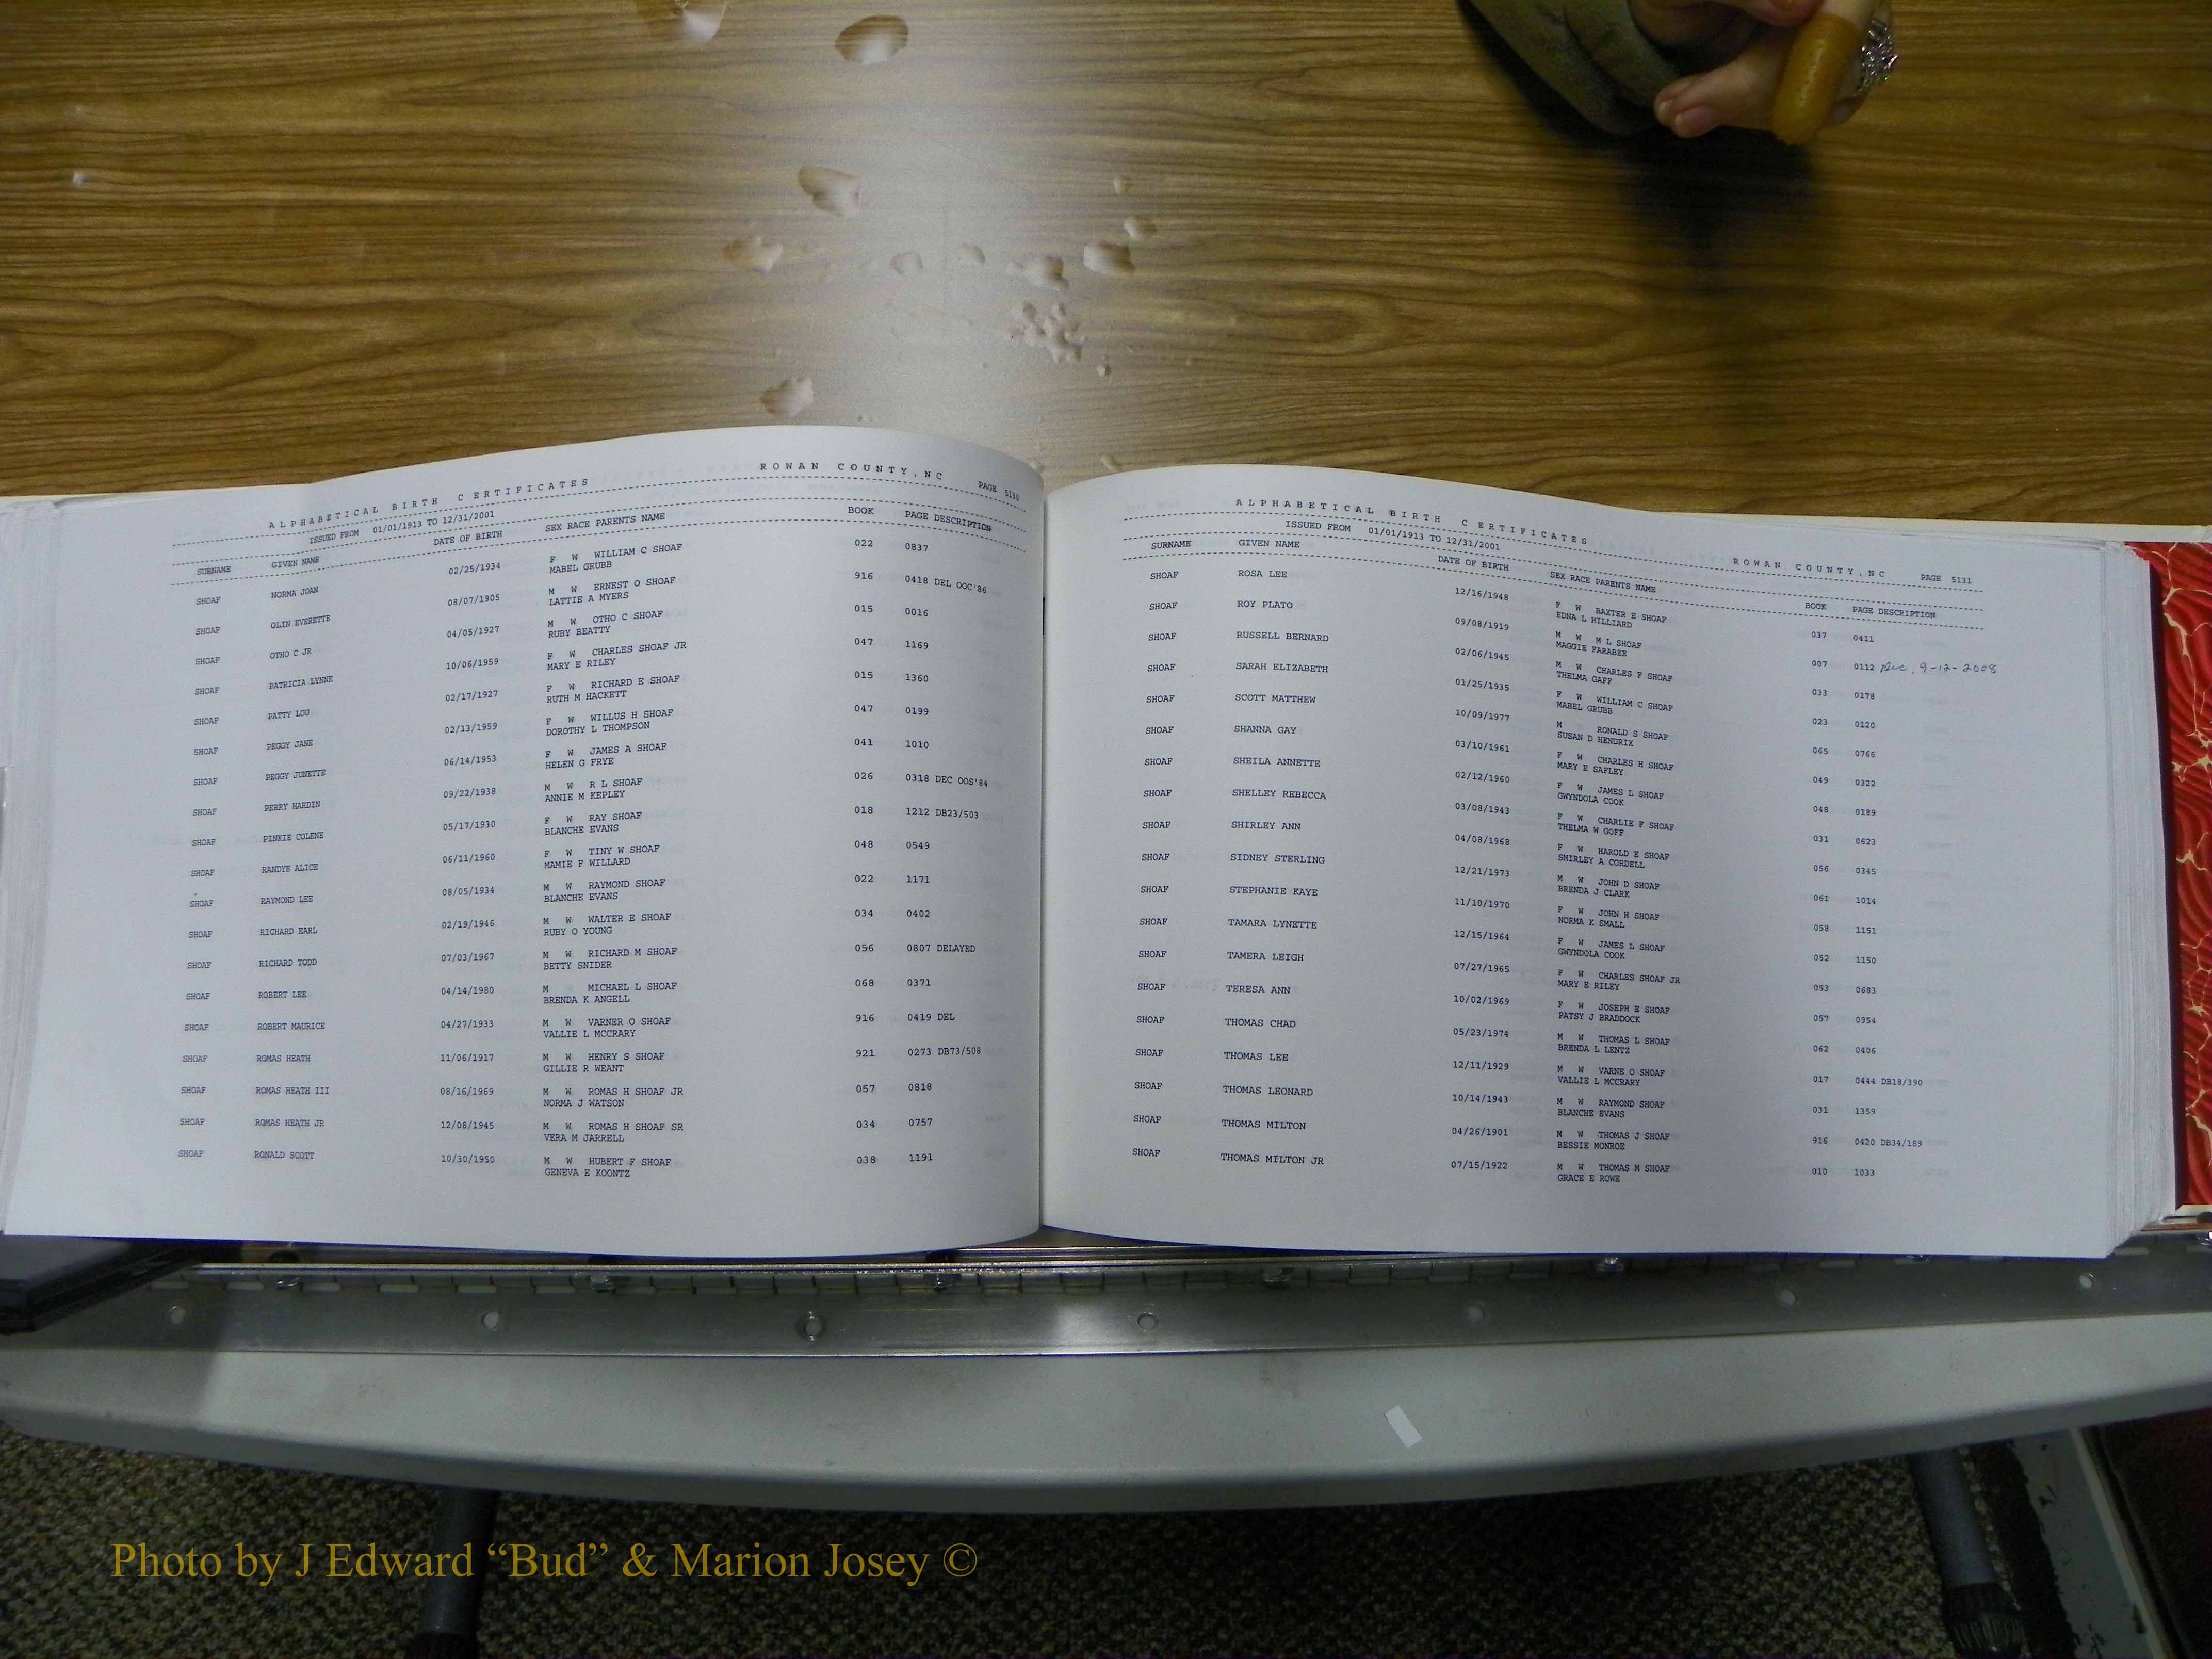 ALPHABETICAL BIRTH CERTIFICATES ROWAN COUNTY, NC PAGE 5130
ISSUED FROM 01/01/1913 TO 12/31/2001
SURNAME GIVEN NAME DATE OF BIRTH SEX RACE PARENTS NAME BOOK PAGE DESCRIPTION
SHOAF NORMA JOAN 02/25/1934 F W WILLIAM C SHOAF 022 0837
MABEL GRUBB
SHOAF OLIN EVERETTE 08/07/1905 M W ERNEST O SHOAF 916 0418 DEL OOC'86
LATTIE A MYERS
SHOAF OTHO C JR 04/05/1927 M W OTHO C SHOAF 015 0016
RUBY BEATTY
SHOAF PATRICIA LYNNE 10/06/1959 F W CHARLES SHOAF JR 047 1169
MARY E RILEY
SHOAF PATTY LOU 02/17/1927 F W RICHARD E SHOAF 015 1360
RUTH M HACKETT
SHOAF PEGGY JANE 02/13/1959 F W WILLUS H SHOAF 047 0199
DOROTHY L THOMPSON
SHOAF PEGGY JUNETTE 06/14/1953 F W JAMES A SHOAF 041 1010
HELEN G FRYE
SHOAF PERRY HARDIN 09/22/1938 M W R L SHOAF 026 0318 DEC OOS'84
ANNIE M KEPLEY
SHOAF PINKIE COLENE 05/17/1930 F W RAY SHOAF 018 1212 DB23/503
BLANCHE EVANS
SHOAF RANDYE ALICE 06/11/1960 F W TINY W SHOAF 048 0549
MAMIE F WILLARD
SHOAF RAYMOND LEE 08/05/1934 M W RAYMOND SHOAF 022 1171
BLANCHE EVANS
SHOAF RICHARD EARL 02/19/1946 M W WALTER E SHOAF 034 0402
RUBY O YOUNG
SHOAF RICHARD TODD 07/03/1967 M W RICHARD M SHOAF 056 0807 DELAYED
BETTY SNIDER
SHOAF ROBERT LEE 04/14/1980 M MICHAEL L SHOAF 068 0371
BRENDA K ANGELL
SHOAF ROBERT MAURICE 04/27/1933 M W VARNER O SHOAF 916 0419 DEL
VALLIE L MCCRARY
SHOAF ROMAS HEATH 11/06/1917 M W HENRY S SHOAF 921 0273 DB73/508
GILLIE R WEANT
SHOAF ROMAS HEATH III 08/16/1969 M W ROMAS H SHOAF JR 057 0818
NORMA J WATSON
SHOAF ROMAS HEATH JR 12/08/1945 M W ROMAS H SHOAF SR 034 0757
VERA M JARRELL
SHOAF RONALD SCOTT 10/30/1950 M W HUBERT F SHOAF 038 1191
GENEVA E KOONTZ
ALPHABETICAL BIRTH CERTIFICATES ROWAN COUNTY, NC PAGE 5131
ISSUED FROM 01/01/1913 TO 12/31/2001
SURNAME GIVEN NAME DATE OF BIRTH SEX RACE PARENTS NAME BOOK PAGE DESCRIPTION
SHOAF ROSA LEE 12/16/1948 F W BAXTER E SHOAF 037 0411
EDNA L HILLIARD
SHOAF ROY PLATO 09/08/1919 M W M L SHOAF 007 0112 Dec. 9-12-2008
MAGGIE FARABEE
SHOAF RUSSELL BERNARD 02/06/1945 M W CHARLES F SHOAF 033 0178
THELMA GAFF
SHOAF SARAH ELIZABETH 01/25/1935 F W WILLIAM C SHOAF 023 0120
MABEL GRUBB
SHOAF SCOTT MATTHEW 10/09/1977 M RONALD S SHOAF 065 0766
SUSAN D HENDRIX
SHOAF SHANNA GAY 03/10/1961 F W CHARLES H SHOAF 049 0322
MARY E SAFLEY
SHOAF SHEILA ANNETTE 02/12/1960 F W JAMES L SHOAF 048 0189
GWYNDOLA COOK
SHOAF SHELLEY REBECCA 03/08/1943 F W CHARLIE F SHOAF 031 0623
THELMA W GOFF
SHOAF SHIRLEY ANN 04/08/1968 F W HAROLD E SHOAF 056 0345
SHIRLEY A CORDELL
SHOAF SIDNEY STERLING 12/21/1973 M W JOHN D SHOAF 061 1014
BRENDA J CLARK
SHOAF STEPHANIE KAYE 11/10/1970 F W JOHN H SHOAF 058 1151
NORMA K SMALL
SHOAF TAMARA LYNETTE 12/15/1964 F W JAMES L SHOAF 052 1150
GWYNDOLA COOK
SHOAF TAMERA LEIGH 07/27/1965 F W CHARLES SHOAF JR 053 0683
MARY E RILEY
SHOAF TERESA ANN 10/02/1969 F W JOSEPH E SHOAF 057 0954
PATSY J BRADDOCK
SHOAF THOMAS CHAD 05/23/1974 M W THOMAS L SHOAF 062 0406
BRENDA L LENTZ
SHOAF THOMAS LEE 12/11/1929 M W VARNE O SHOAF 017 0444 DB18/390
VALLIE L MCCRARY
SHOAF THOMAS LEONARD 10/14/1943 M W RAYMOND SHOAF 031 1359
BLANCHE EVANS
SHOAF THOMAS MILTON 04/26/1901 M W THOMAS J SHOAF 916 0420 DB34/189
BESSIE MONROE
SHOAF THOMAS MILTON JR 07/15/1922 M W THOMAS M SHOAF 010 1033
GRACE E ROWE
Photo by J Edward “Bud” & Marion Josey ©